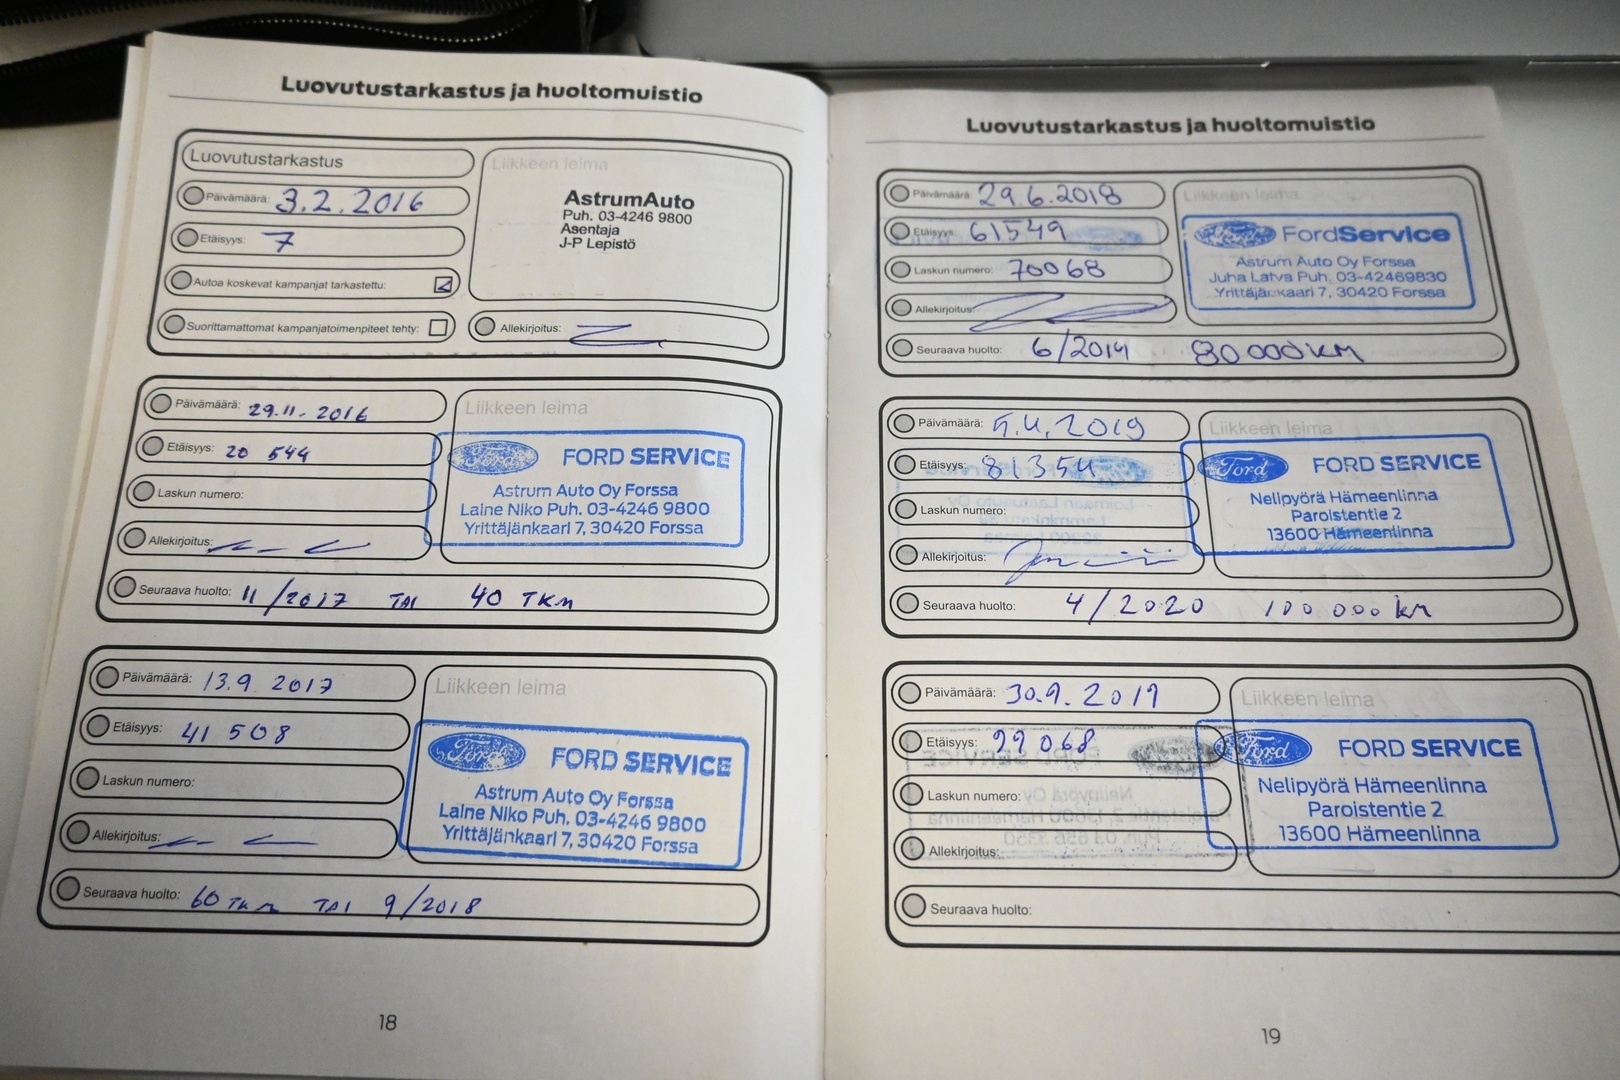 Luovutustarkastus ja huoltomuistio
Luovutustarkastus
Päivämäärä: 3.2.2016
Etäisyys: 7
Autoa koskevat kampanjat tarkastettu:
Suorittamattomat kampanjatoimenpiteet tehty:
Liikkeen leima
AstrumAuto
Puh. 03-4246 9800
Asentaja
J-P Lepistö
Allekirjoitus:
Päivämäärä: 29.11.2016
Etäisyys: 20 544
Laskun numero:
Allekirjoitus:
Liikkeen leima
Ford FORD SERVICE
Astrum Auto Oy Forssa
Laine Niko Puh. 03-4246 9800
Yrittäjänkaari 7, 30420 Forssa
Seuraava huolto: 11/2017 TAI 40 TKM
Päivämäärä: 13.9.2017
Etäisyys: 41 508
Laskun numero:
Allekirjoitus:
Liikkeen leima
Ford FORD SERVICE
Astrum Auto Oy Forssa
Laine Niko Puh. 03-4246 9800
Yrittäjänkaari 7, 30420 Forssa
Seuraava huolto: 60 TKM TAI 9/2018
18
Luovutustarkastus ja huoltomuistio
Päivämäärä: 29.6.2018
Etäisyys: 61549
Laskun numero: 70068
Allekirjoitus:
Liikkeen leima
FordService
Astrum Auto Oy Forssa
Juha Latva Puh. 03-42469830
Yrittäjänkaari 7, 30420 Forssa
Seuraava huolto: 6/2019 80000KM
Päivämäärä: 5.4.2019
Etäisyys: 81354
Laskun numero:
Allekirjoitus:
Liikkeen leima
Ford FORD SERVICE
Nelipyörä Hämeenlinna
Paroistentie 2
13600 Hämeenlinna
Seuraava huolto: 4/2020 100 000 km
Päivämäärä: 30.9.2019
Etäisyys: 99 068
Laskun numero:
Allekirjoitus:
Liikkeen leima
Ford FORD SERVICE
Nelipyörä Hämeenlinna
Paroistentie 2
13600 Hämeenlinna
Seuraava huolto:
19